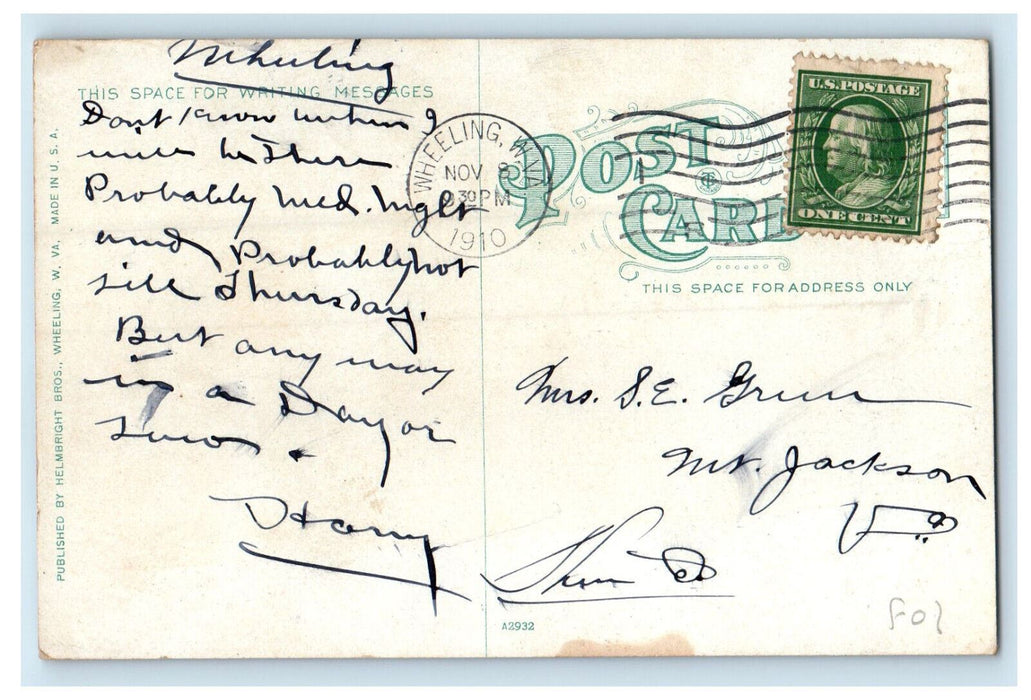 Wheeling
THIS SPACE FOR WRITING MESSAGES
Don't know when I
will be There
Probably Wed. Night
and Probably not
till Thursday.
But any way
in a Day or
Two.
Harry
PUBLISHED BY HELMBRIGHT BROS., WHEELING, W. VA. MADE IN U. S. A.
WHEELING, W. VA.
NOV 8
930 PM
1910
POST
CARD
U.S. POSTAGE
ONE CENT
THIS SPACE FOR ADDRESS ONLY
Mrs. S. E. Grim
Mt. Jackson
Va
Shen Co
A2932